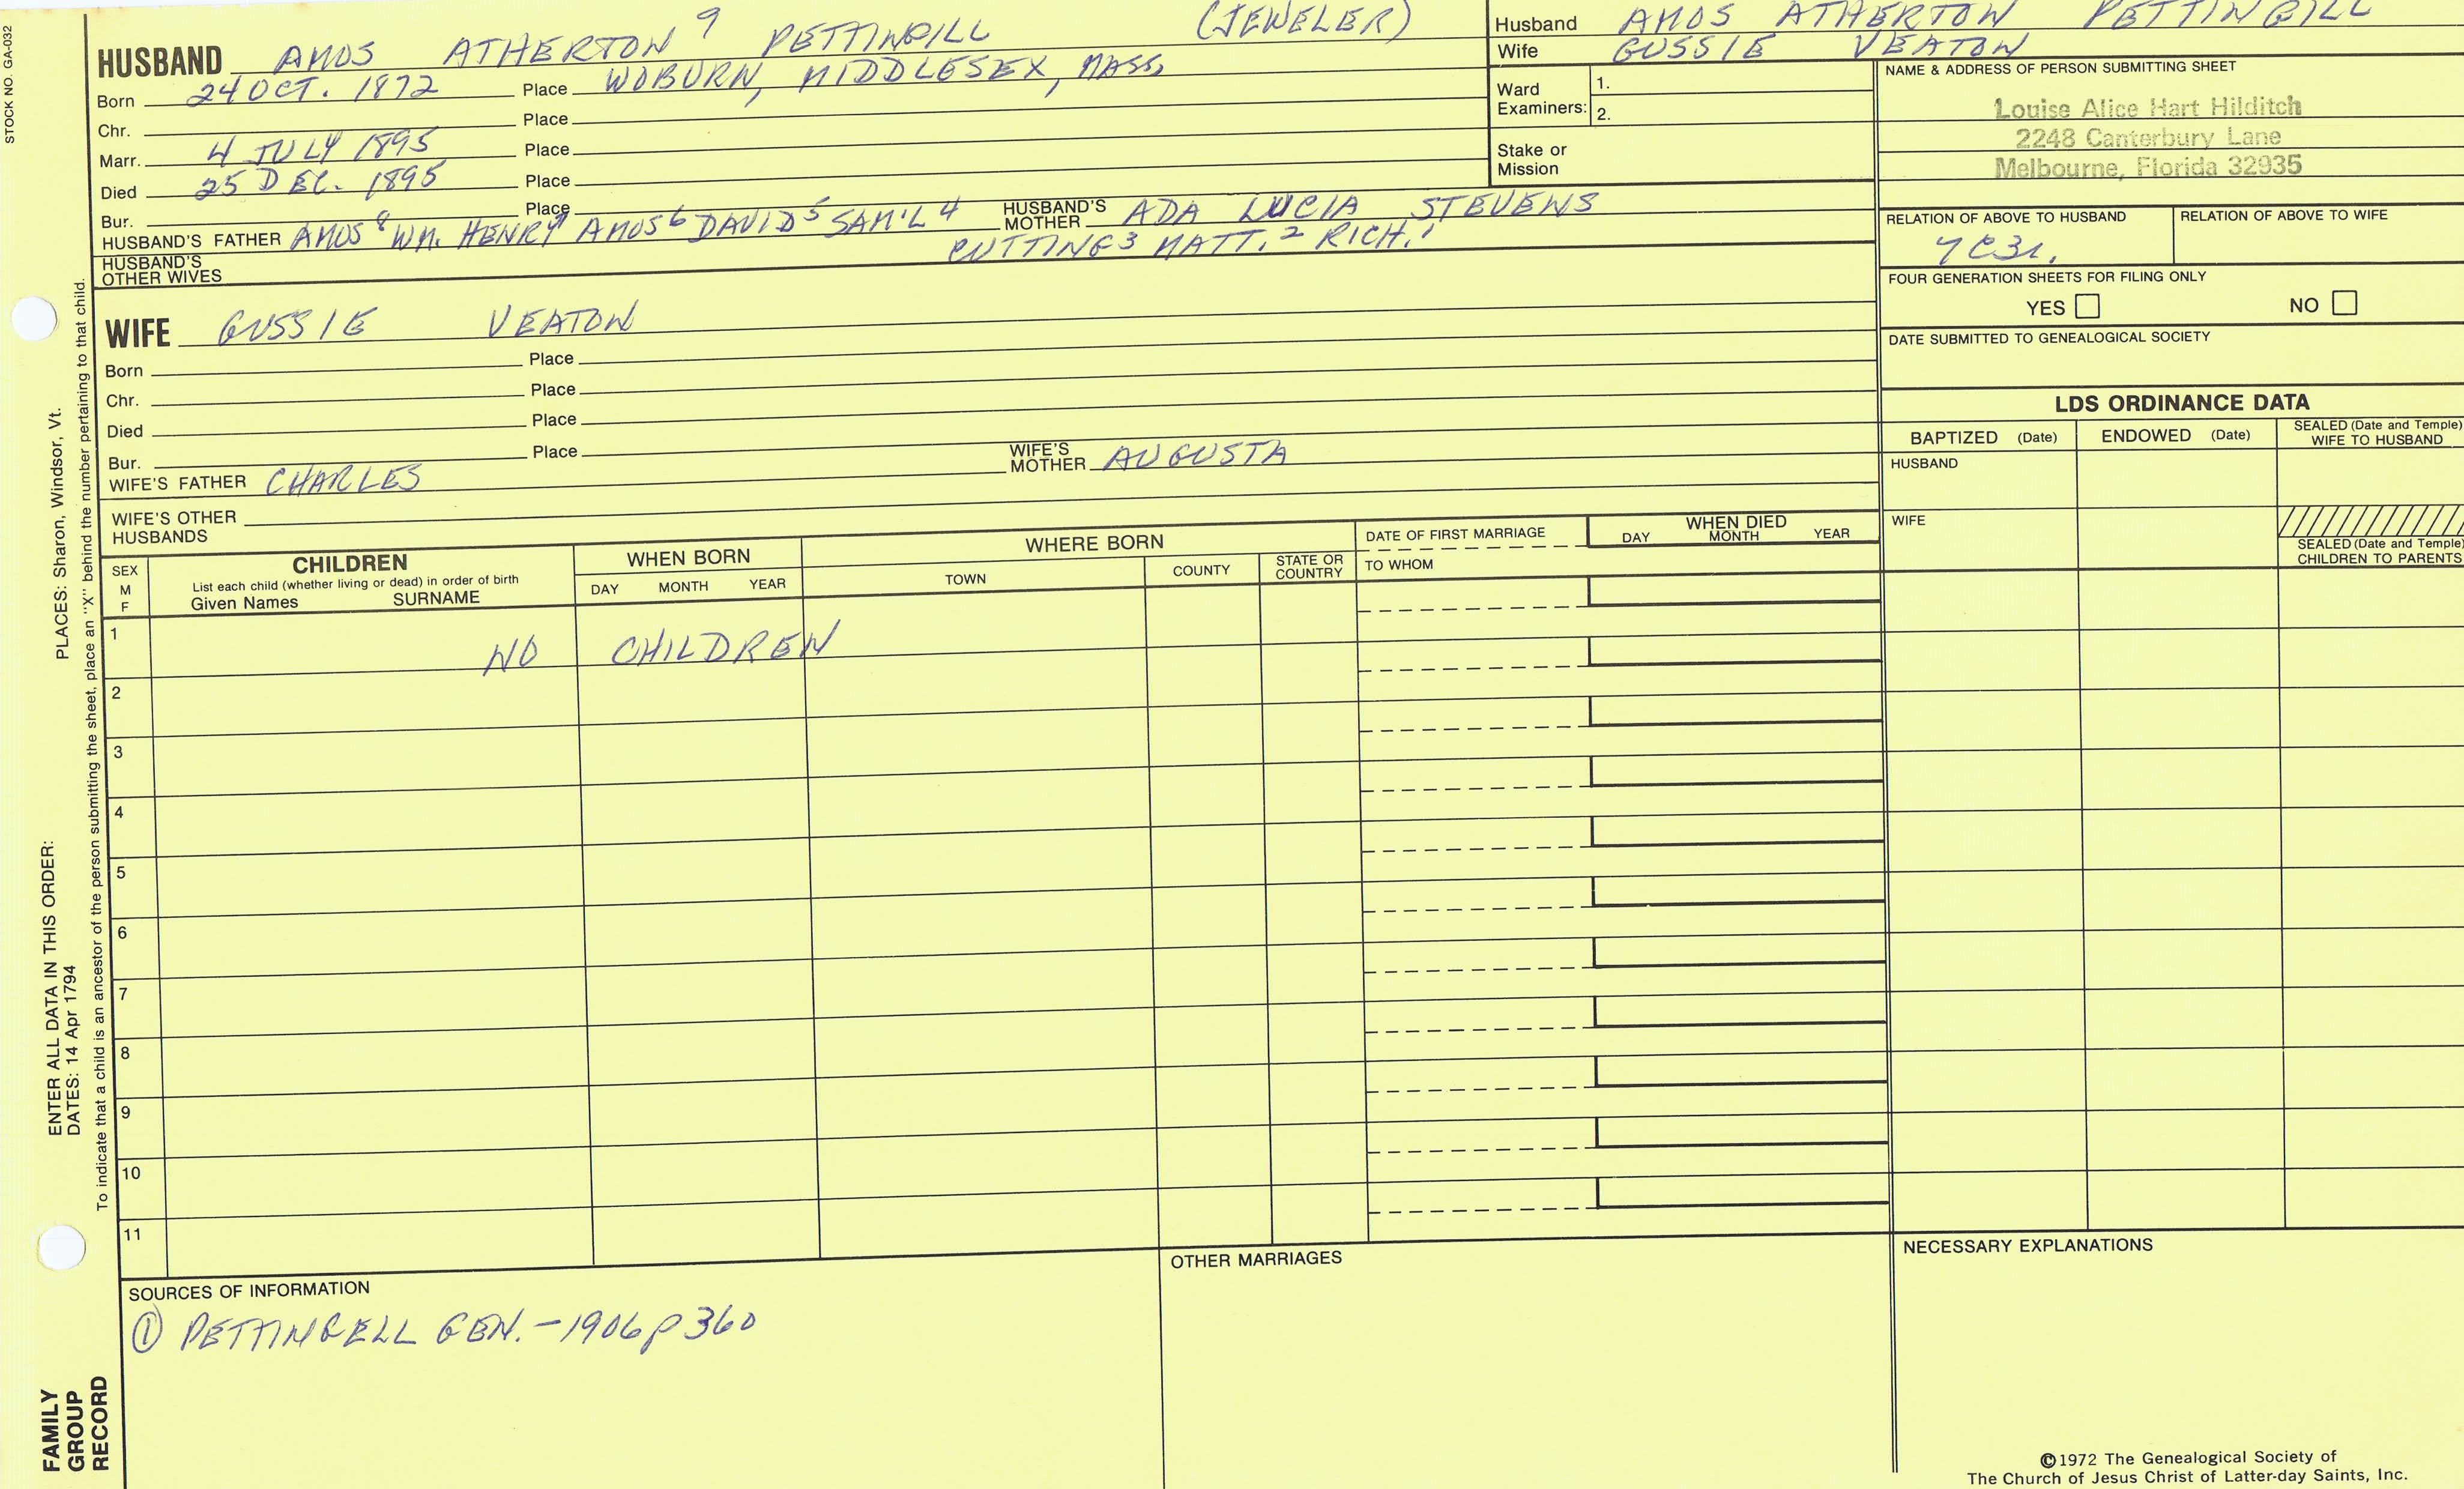 STOCK NO. GA-032
HUSBAND AMOS ATHERTON 9 PETTINGILL (JEWELER)
Born 24 OCT. 1872 Place WOBURN, MIDDLESEX, MASS.
Chr. Place
Marr. 4 JULY 1895 Place
Died 25 DEC. 1895 Place
Bur. Place
HUSBAND'S FATHER AMOS 8 WM. HENRY 7 AMOS 6 DAVID 5 SAM'L 4 HUSBAND'S MOTHER ADA LUCIA STEVENS
CUTTING 3 MATT. 2 RICH. 1
HUSBAND'S OTHER WIVES
WIFE GUSSIE VEATON
Born Place
Chr. Place
Died Place
Bur. Place
WIFE'S FATHER CHARLES WIFE'S MOTHER AUGUSTA
WIFE'S OTHER HUSBANDS
Husband AMOS ATHERTON PETTINGILL
Wife GUSSIE VEATON
Ward Examiners: 1.
2.
Stake or Mission
NAME & ADDRESS OF PERSON SUBMITTING SHEET
Louise Alice Hart Hilditch
2248 Canterbury Lane
Melbourne, Florida 32935
RELATION OF ABOVE TO HUSBAND RELATION OF ABOVE TO WIFE
7C3r.
FOUR GENERATION SHEETS FOR FILING ONLY
YES NO
DATE SUBMITTED TO GENEALOGICAL SOCIETY
LDS ORDINANCE DATA
BAPTIZED (Date) ENDOWED (Date) SEALED (Date and Temple) WIFE TO HUSBAND
HUSBAND
WIFE
SEALED (Date and Temple) CHILDREN TO PARENTS
SEX M F
CHILDREN
List each child (whether living or dead) in order of birth
Given Names SURNAME
WHEN BORN
DAY MONTH YEAR
WHERE BORN
TOWN COUNTY STATE OR COUNTRY
DATE OF FIRST MARRIAGE
TO WHOM
WHEN DIED
DAY MONTH YEAR
1 NO CHILDREN
2
3
4
5
6
7
8
9
10
11
SOURCES OF INFORMATION
① PETTINGELL GEN. - 1906 p 360
OTHER MARRIAGES
NECESSARY EXPLANATIONS
©1972 The Genealogical Society of
The Church of Jesus Christ of Latter-day Saints, Inc.
ENTER ALL DATA IN THIS ORDER:
DATES: 14 Apr 1794 PLACES: Sharon, Windsor, Vt.
To indicate that a child is an ancestor of the person submitting the sheet, place an "X" behind the number pertaining to that child.
FAMILY
GROUP
RECORD